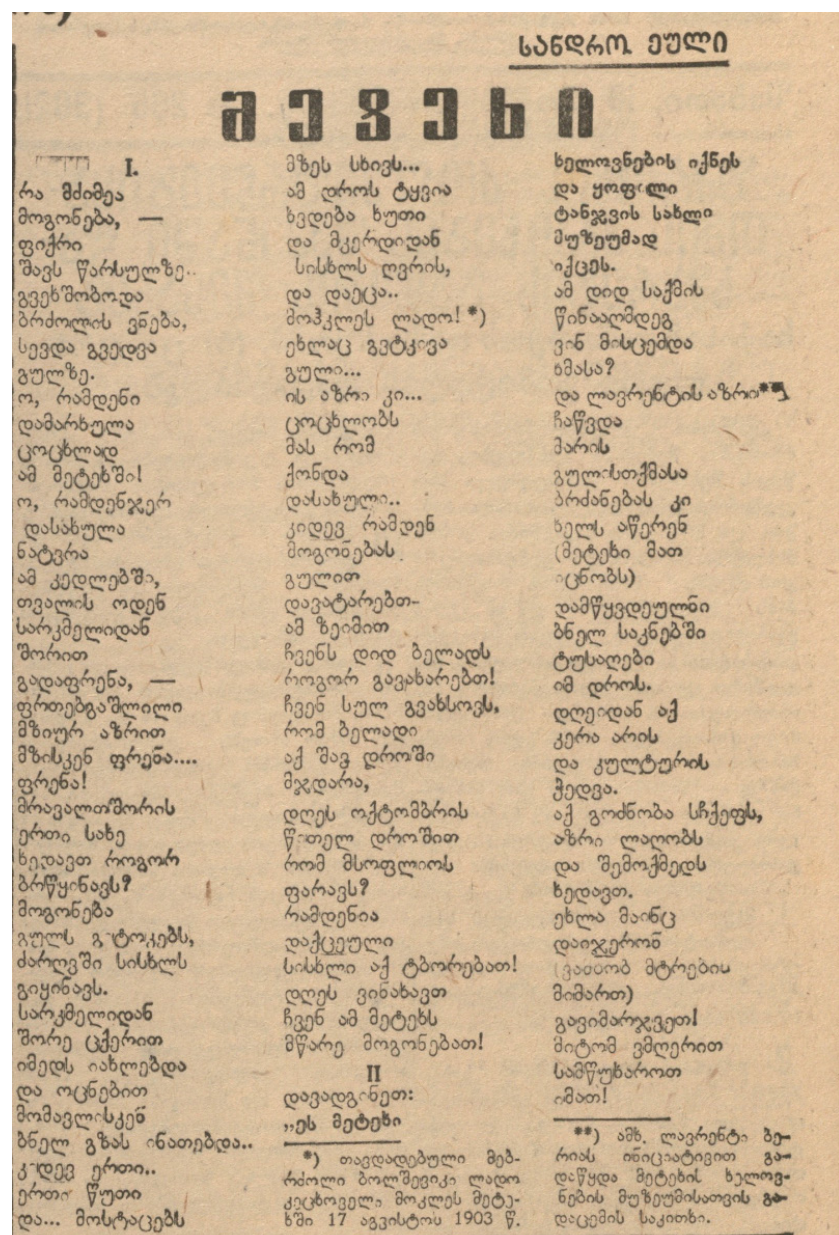 სანდრო ეული
მეტეხი
I.
რა მძიმეა
მოგონება, —
ფიქრი
შავს წარსულზე..
გვეხშობოდა
ბრძოლის ვნება,
სევდა გვედვა
გულზე.
ო, რამდენი
დამარხულა
ცოცხლად
ამ მეტეხში!
ო, რამდენჯერ
დასახულა
ნატვრა
ამ კედლებში,
თვალის ოდენ
სარკმელიდან
შორით
გადაფრენა, —
ფრთებგაშლილი
მზიურ აზრით
მზისკენ ფრენა....
ფრენა!
მრავალთშორის
ერთი სახე
ხედავთ როგორ
ბრწყინავს?
მოგონება
გულს გიტოკებს,
ძარღვში სისხლს
გიყინავს.
სარკმელიდან
შორე ცქერით
იმედს იახლებდა
და ოცნებით
მომავლისკენ
ბნელ გზას ინათებდა..
კიდევ ერთი..
ერთი წუთი
და... მოსტაცებს
მზეს სხივს...
ამ დროს ტყვია
ხვდება ხუთი
და მკერდიდან
სისხლს ღვრის,
და დაეცა..
მოჰკლეს ლადო! *)
ეხლაც გვტკივა
გული...
ის აზრი კი...
ცოცხლობს
მას რომ
ქონდა
დასახული..
კიდევ რამდენ
მოგონებას
გულით
დავატარებთ-
ამ ზეიმით
ჩვენს დიდ ბელადს
როგორ გავახარებთ!
ჩვენ სულ გვახსოვს,
რომ ბელადი
აქ შავ დროში
მჯდარა,
დღეს ოქტომბრის
წითელ დროშით
რომ მსოფლიოს
ფარავს?
რამდენია
დაქცეული
სისხლი აქ ტბორებათ!
დღეს ვინახავთ
ჩვენ ამ მეტეხს
მწარე მოგონებათ!
II
დავადგინეთ:
„ეს მეტეხი
*) თავდადებული მებ-
რძოლი ბოლშევიკი ლადო
კეცხოველი მოკლეს მეტე-
ხში 17 აგვისტოს 1903 წ.
ხელოვნების იქნეს
და ყოფილი
ტანჯვის სახლი
მუზეუმად
იქცეს.
ამ დიდ საქმის
წინააღმდეგ
ვინ მისცემდა
ხმასა?
და ლავრენტის აზრი**)
ჩაწვდა
მარის
გულისთქმასა
ბრძანებას კი
ხელს აწერენ
(მეტეხი მათ
იცნობს)
დამწყვდეულნი
ბნელ საკნებში
ტუსაღები
იმ დროს.
დღეიდან აქ
კერა არის
და კულტურის
ჭედვა.
აქ გოძნობა სჩქეფს,
აზრი ლაღობს
და შემოქმედს
ხედავთ.
ეხლა მაინც
დაიჯერონ
(ვამბობ მტრების
მიმართ)
გავიმარჯვეთ!
მიტომ ვმღერით
სამწუხაროთ
იმათ!
**) ამხ. ლავრენტი ბე-
რიას ინიციატივით გა-
დაწყდა მეტეხის ხელოვ-
ნების მუზეუმისათვის გა-
დაცემის საკითხი.